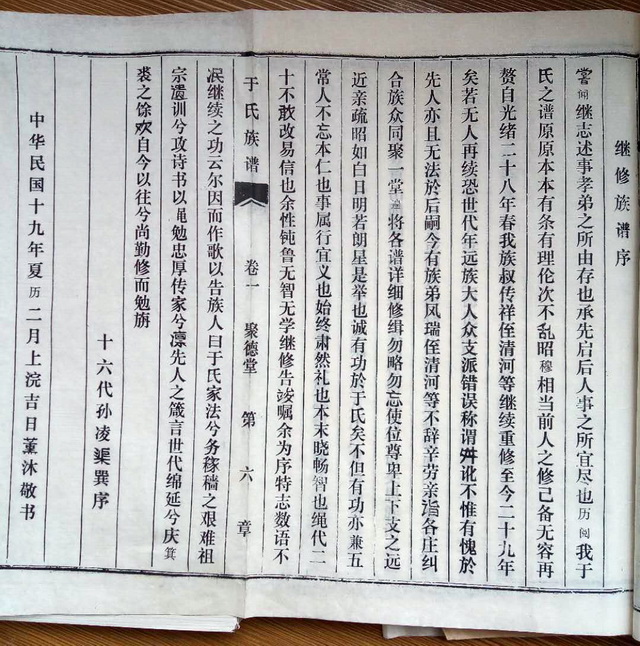 继修族谱序
尝闻继志述事孝弟之所由存也承先启后人事之所宜尽也历阅我于
氏之谱原原本本有条有理伦次不乱昭穆相当前人之修己备无容再
赘自光绪二十八年春我族叔传祥侄清河等继续重修至今二十九年
矣若无人再续恐世代年远族大人众支派错误称谓舛讹不惟有愧於
先人亦且无法於后嗣今有族弟风瑞侄清河等不辞辛劳亲诣各庄纠
合族众同聚一堂将各谱详细修缉勿略勿忘使位尊卑上下支之远
近亲疏昭如白日明若朗星是举也诚有功於于氏矣不但有功亦兼五
常人不忘本仁也事属行宜义也始终肃然礼也本末晓畅智也绳代二
十不敢改易信也余性钝鲁无智无学继修告竣嘱余为序特志数语不
于氏族谱 卷一 聚德堂 第六章
泯继续之功云尔因而作歌以告族人曰于氏家法兮务稼穑之艰难祖
宗遗训兮攻诗书以黾勉忠厚传家兮凛先人之箴言世代绵延兮庆箕
裘之馀欢自今以往兮尚勤修而勉旃
十六代孙凌渠巽序
中华民国十九年夏历二月上浣吉日薰沐敬书